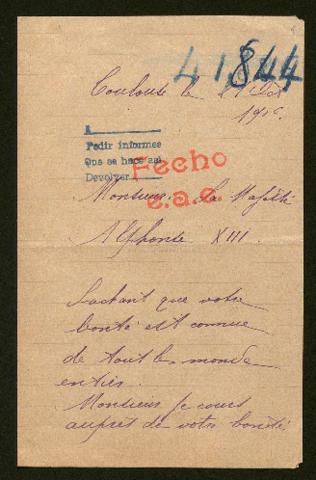 41,844
Toulouse le
191
A
Pedir informes
Que se hace así
Devolver
Fecho
e.a.c.
Monsieur, Sa Majesté
Alphonse XIII.
Sachant que votre
bonté est connue
de tout le monde
entier.
Monsieur je cours
auprès de votre bonté